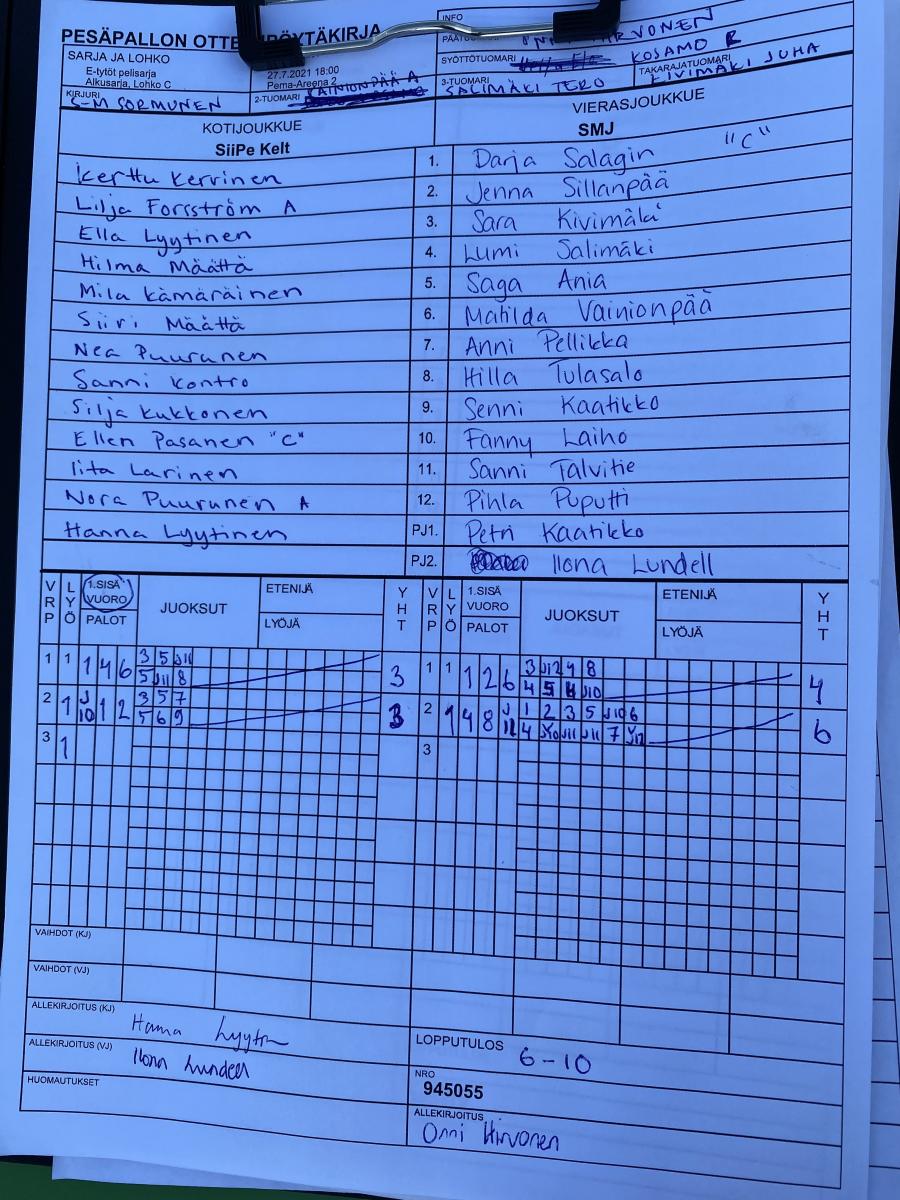 PESÄPALLON OTTELUPÖYTÄKIRJA
INFO
SARJA JA LOHKO
E-tytöt pelisarja
Alkusarja, Lohko C
27.7.2021 18:00
Pema-Areena 2
SYÖTTÖTUOMARI KOSAMO R
KIRJURI S-M SORMUNEN
2-TUOMARI VAINIONPÄÄ A
3-TUOMARI SALIMÄKI TERO
TAKARAJATUOMARI KIVIMÄKI JUHA
KOTIJOUKKUE
SiiPe Kelt
VIERASJOUKKUE
SMJ
Kerttu Kervinen 1. Darja Salagin "C"
Lilja Forsström A 2. Jenna Sillanpää
Ella Lyytinen 3. Sara Kivimäki
Hilma Määttä 4. Lumi Salimäki
Mila Kämäräinen 5. Saga Ania
Siiri Määttä 6. Matilda Vainionpää
Nea Puurunen 7. Anni Pellikka
Sanni Kontro 8. Hilla Tulasalo
Silja Kukkonen 9. Senni Kaatikko
Ellen Pasanen "C" 10. Fanny Laiho
Iita Larinen 11. Sanni Talvitie
Nora Puurunen A 12. Pihla Puputti
Hanna Lyytinen PJ1. Petri Kaatikko
PJ2. Ilona Lundell
VRP LYÖ 1.SISÄ VUORO PALOT JUOKSUT ETENIJÄ LYÖJÄ YHT VRP LYÖ 1.SISÄ VUORO PALOT JUOKSUT ETENIJÄ LYÖJÄ YHT
1 1 1 4 6 3 5 J11 3 1 1 1 2 6 3 J12 9 8 4
5 J11 8 4 5 4 J10
2 1 J10 1 2 3 5 7 3 2 1 4 8 J12 1 2 3 5 J10 6 6
5 6 9 4 J10 J11 J11 7 J12
3 1 3
VAIHDOT (KJ)
VAIHDOT (VJ)
ALLEKIRJOITUS (KJ) Hanna Lyytin
ALLEKIRJOITUS (VJ) Ilona Lundell
HUOMAUTUKSET
LOPPUTULOS 6-10
NRO
945055
ALLEKIRJOITUS
Onni Hirvonen